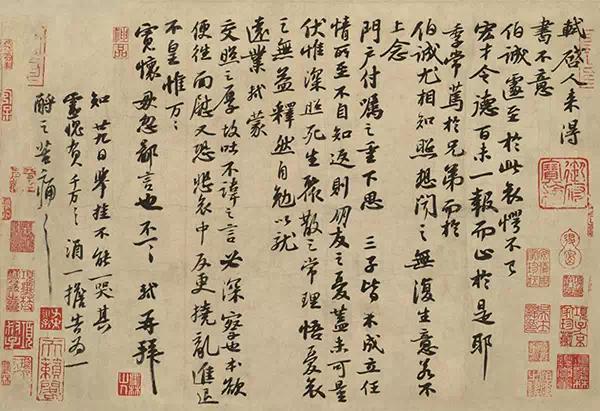 軾啓人來得
書不意
伯誠遽至於此哀愕不已
宏才令德百未一報而止於是耶
季常篤於兄弟而於
伯誠尤相知照想聞之無復生意若不
上念
門戶付囑之重下思三子皆未成立任
情所至不自知返則朋友之憂蓋未可量
伏惟深照死生聚散之常理悟憂哀
之無益釋然自勉以就
遠業軾蒙
交照之厚故吐不諱之言必深察也本欲
便往面慰又恐悲哀中反更撓亂進退
不皇惟万万
寬懷毋忽鄙言也不一一軾再拜
知廿九日舉掛不能一哭其
靈愧負千万千万酒一擔告為一
酹之苦痛苦痛